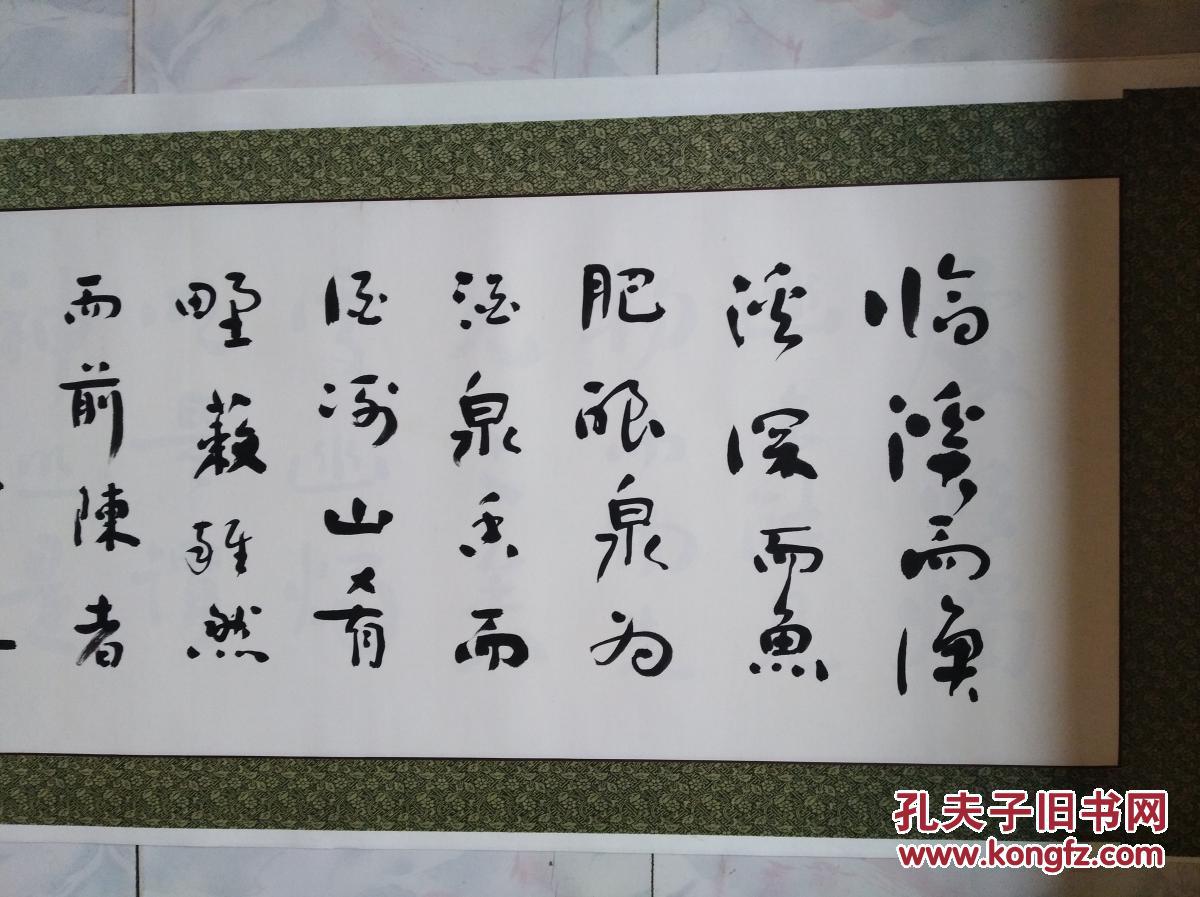 临溪而漁
溪深而魚
肥酿泉为
酒泉香而
酒洌山肴
野蔌雜然
而前陳者
孔夫子旧书网
www.kongfz.com